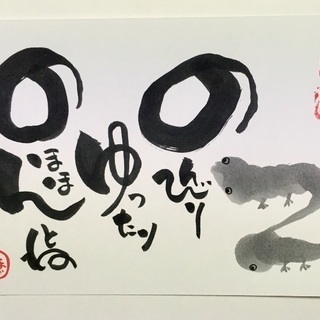 のんびり
ゆったり
のほほんとね